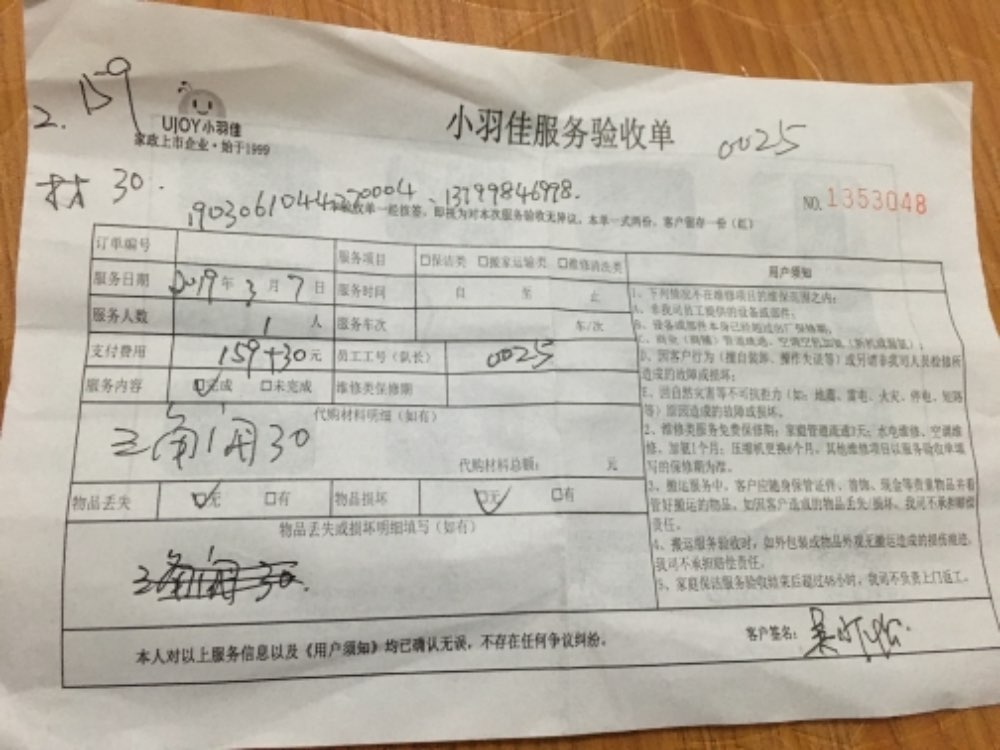 2. 159
UJOY小羽佳
家政上市企业·始于1999
小羽佳服务验收单
0025
材 30.
13799846998.
NO. 1353048
本验收单一经核签,即视为对本次服务验收无异议。本单一式两份,客户留存一份(红)
订单编号 服务项目 □保洁类 □搬家运输类 □维修清洗类
服务日期 2019年3月7日 服务时间 自 至 止
服务人数 1 人 服务车次 车/次
支付费用 159+30元 员工工号(队长) 0025
服务内容 □完成 □未完成 维修类保修期
代购材料明细(如有)
三角 闸30
代购材料总额: 元
物品丢失 □无 □有 物品损坏 □无 □有
物品丢失或损坏明细填写(如有)
用户须知
1、下列情况不在维修项目的维保范围之内:
A、非我司员工提供的设备或部件;
B、设备或部件本身已经超过出厂保修期;
D、因客户行为(擅自装卸、操作失误等)或另请非我司人员检修所
造成的故障或损坏;
E、因自然灾害等不可抗拒力(如:地震、雷电、火灾、停电、短路
等)原因造成的故障或损坏。
2、维修类服务免费保修期:家庭管道疏通7天;水电维修、空调维
修、加氨1个月;压缩机更换6个月。其他维修项目以服务验收单填
写的保修期为准。
3、搬运服务中,客户应随身保管证件、首饰、现金等贵重物品并看
管好搬运的物品。如因客户造成的物品丢失/损坏,我司不承担赔偿
责任。
4、搬运服务验收时,如外包装或物品外观无搬运造成的损伤痕迹,
我司不承担赔偿责任。
5、家庭保洁服务验收结束后超过48小时,我司不负责上门返工。
本人对以上服务信息以及《用户须知》均已确认无误,不存在任何争议纠纷。
客户签名: